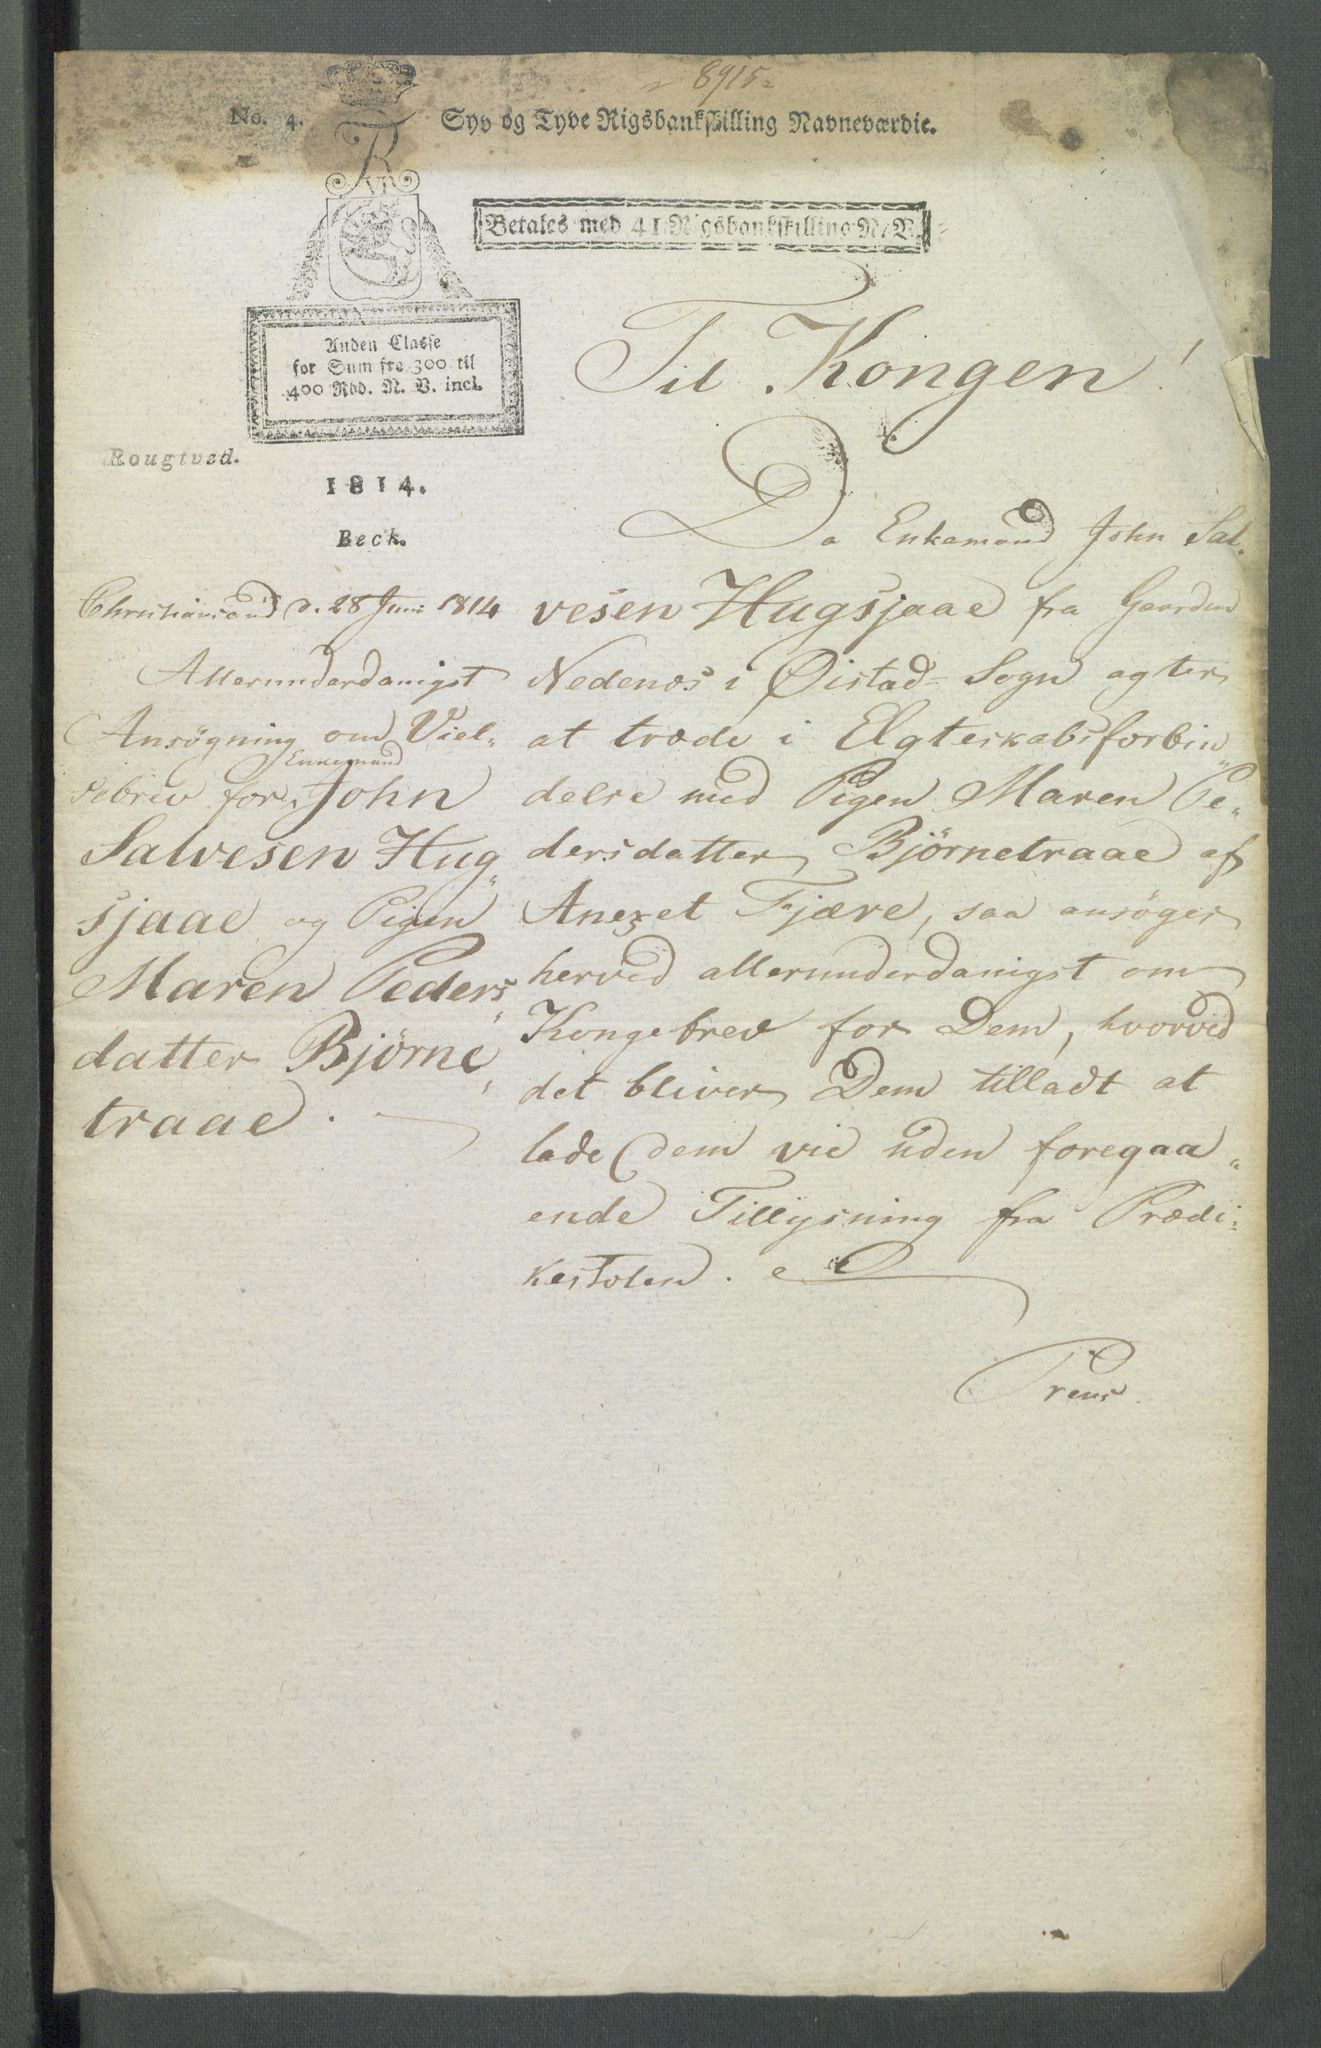 8915
No. 4.
Syv og Tyve Rigsbankskilling Navneværdie.
Betales med 41 Rigsbankskilling N. V.
Anden Classe
for Sum fra 300 til
400 Rbd. N. V. incl.
Rougtved.
1814.
Beck.
Christiansand d. 28 Juni 1814
Allerunderdanigst
Ansøgning om Viel„
sebrev for Enkemand John
Salvesen Hug„
sjaae og Pigen
Maren Peders„
datter Björne„
traae.
Til Kongen!
Da Enkemand John Sal„
vesen Hugsjaae fra Gaarden
Nedenos i Øistad Sogn agter
at træde i Elgteskabsforbin„
delse med Pigen Maren Pe„
dersdatter Björnetraae af
Anexet Fjære, saa ansøges
herved allerunderdanigst om
Kongebrev for Dem, hvorved
det bliver Dem tilladt at
lade dem vie uden foregaa„
ende Tillysning fra Prædi„
kestolen.